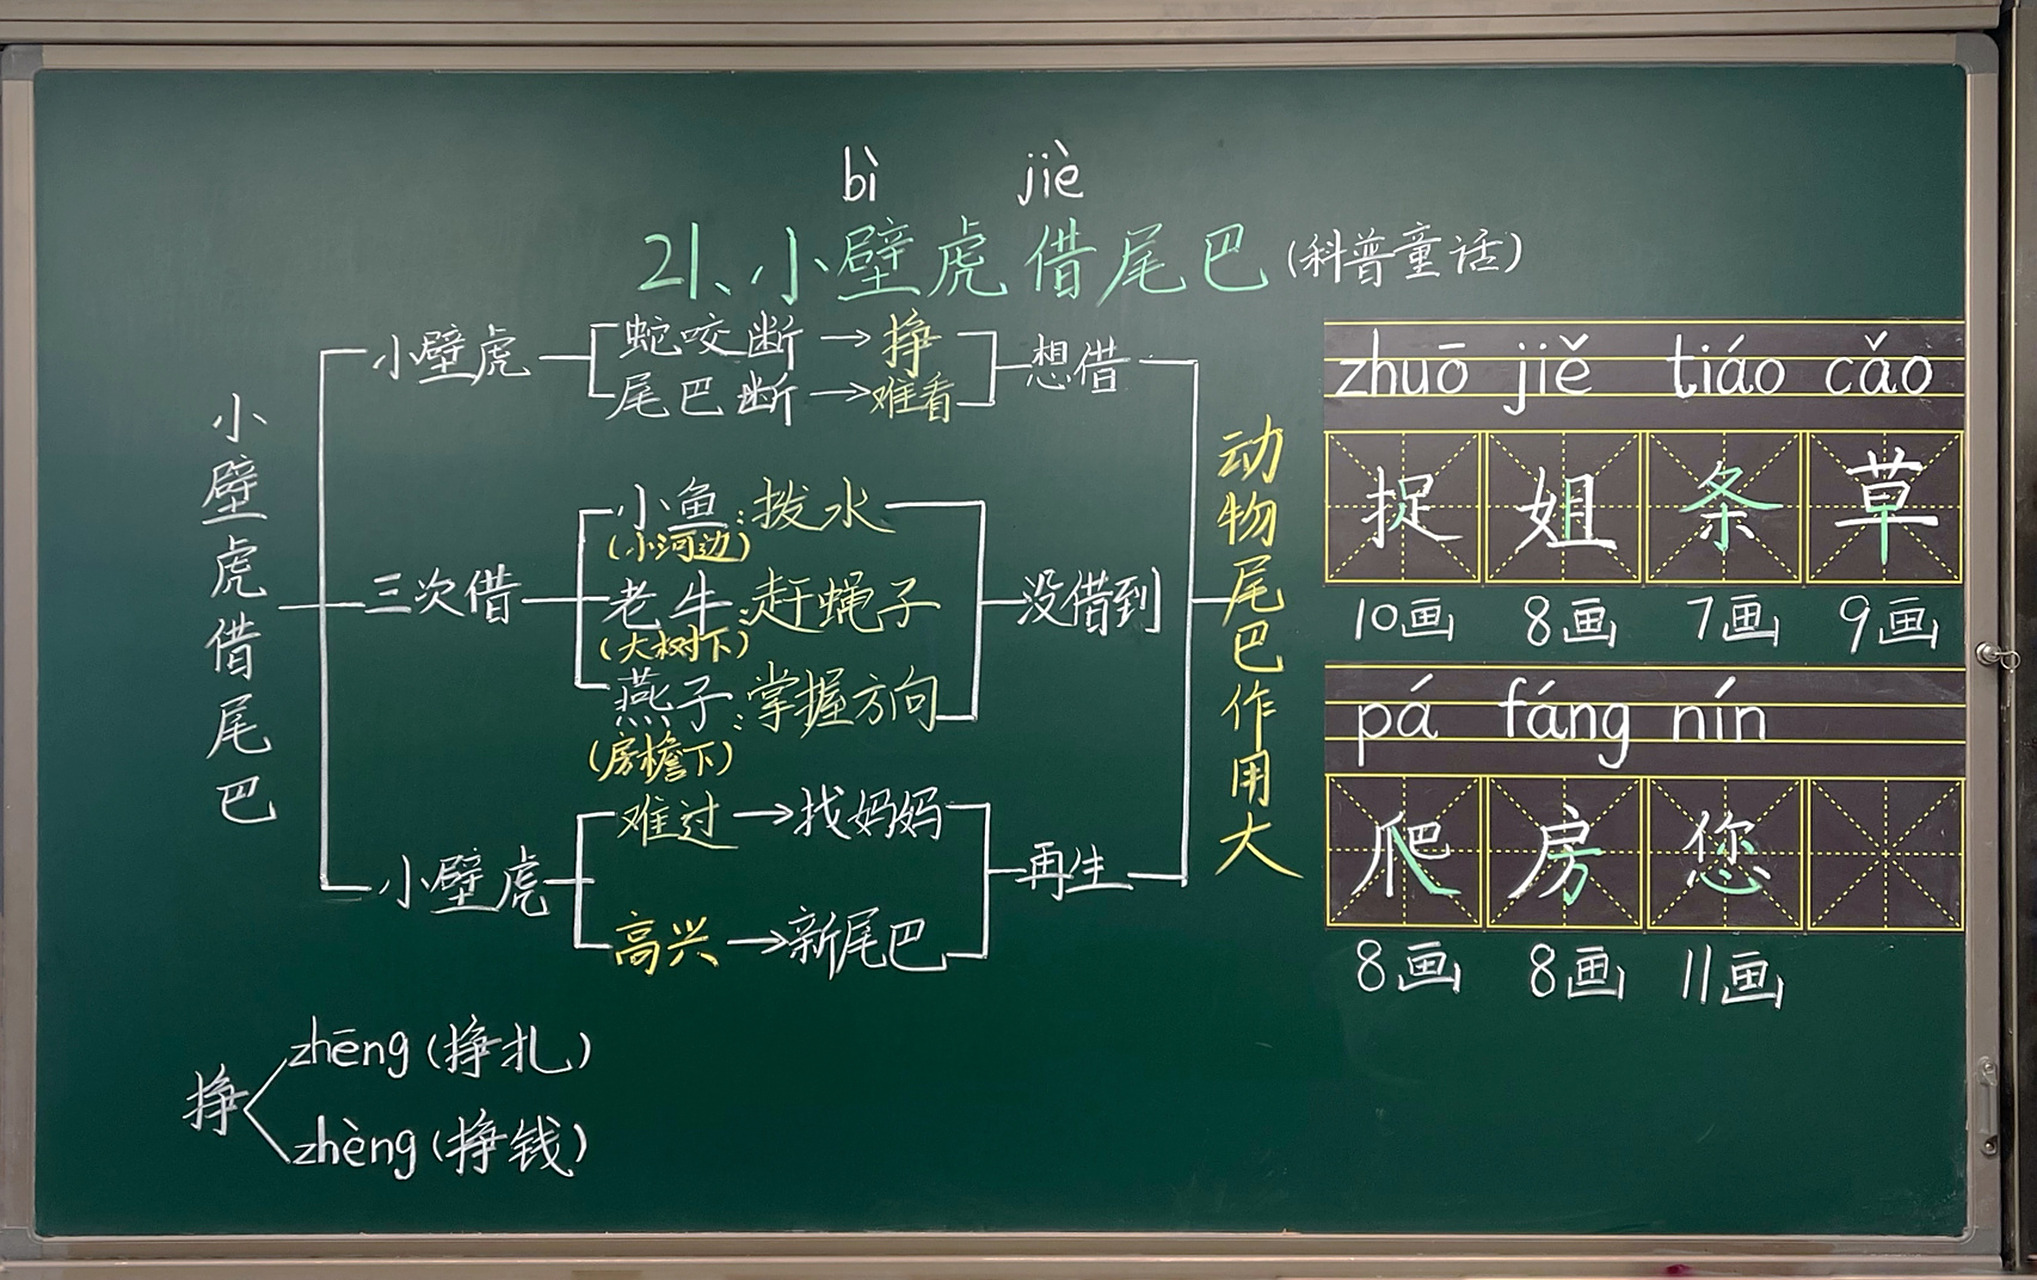 bì jiè
21、小壁虎借尾巴(科普童话)
小壁虎借尾巴
小壁虎
蛇咬断→挣
尾巴断→难看
想借
三次借
小鱼:拨水
(小河边)
老牛:赶蝇子
(大树下)
燕子:掌握方向
(房檐下)
没借到
小壁虎
难过→找妈妈
高兴→新尾巴
再生
动物尾巴作用大
挣
zhēng(挣扎)
zhèng(挣钱)
zhuō jiě tiáo cǎo
捉 姐 条 草
10画 8画 7画 9画
pá fáng nín
爬 房 您
8画 8画 11画